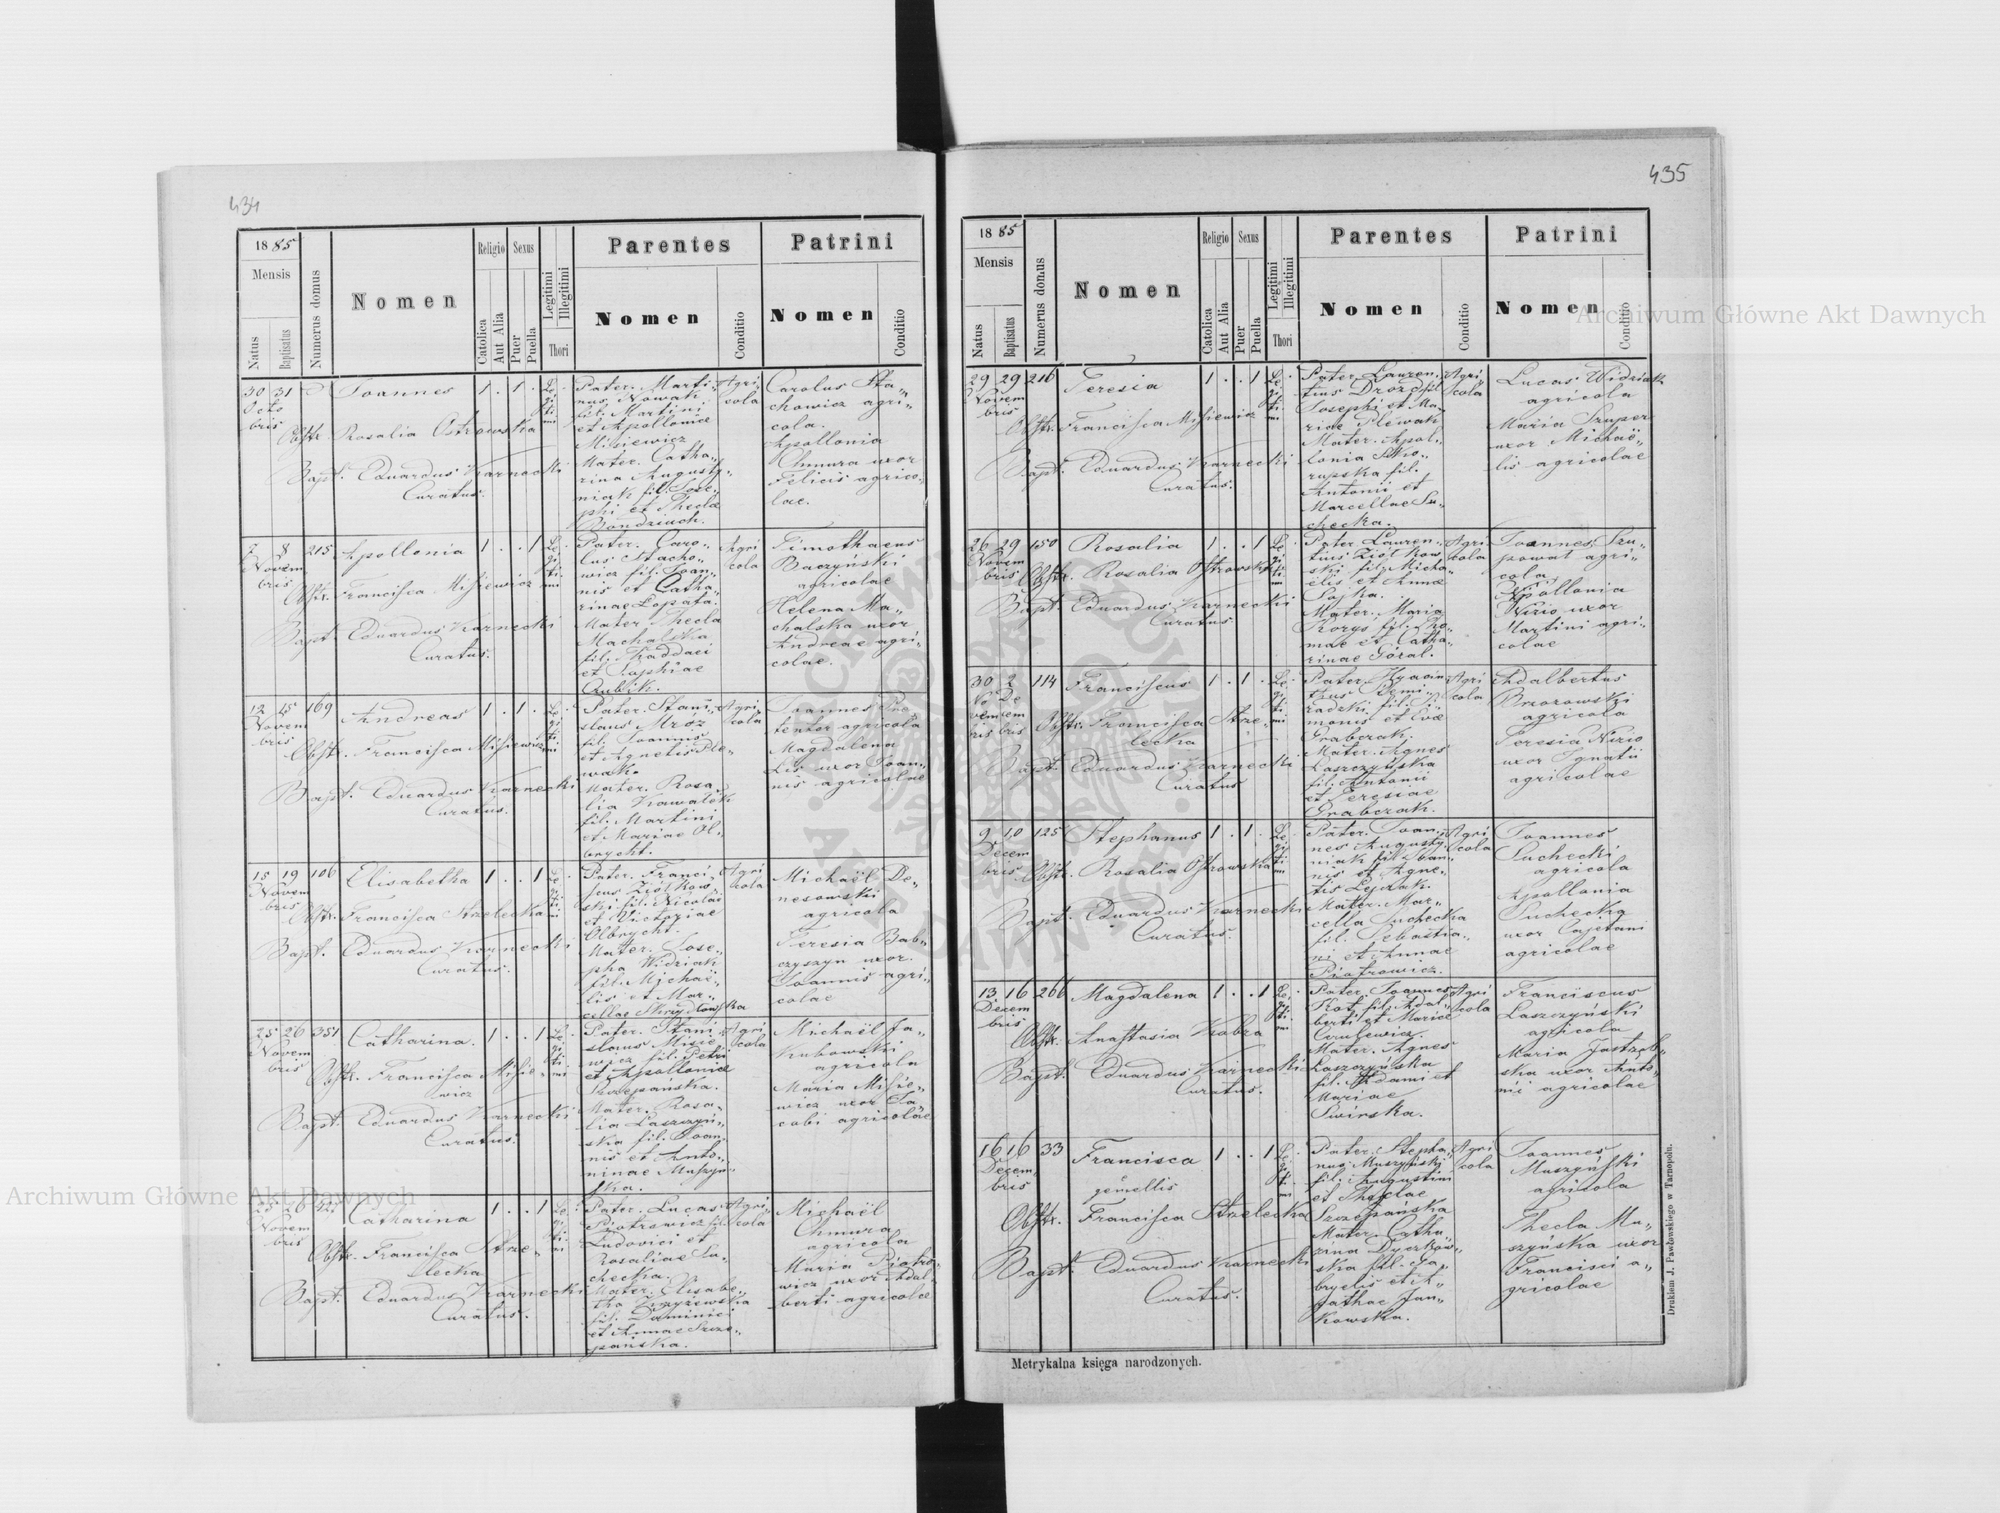 434
1885
Mensis
Natus
Baptisatus
Numerus domus
Nomen
Religio
Catolica
Aut Alia
Sexus
Puer
Puella
Legitimi
Illegitimi
Thori
Parentes
Nomen
Conditio
Patrini
Nomen
Conditio
30 31
Octo
bris
Joannes 1 . 1 .
Le
gi
ti
mi
Obstr. Rosalia Ostrowska
Bapt. Eduardus Karnecki
Curatus.
Pater. Marti
nus Nowak
fil. Martini
et Apolloniae
Misiewicz
Mater. Catha„
rina Augusty„
niak fil. Jose„
phi et Theclae
Bondziuch.
Agri
cola
Carolus Sta„
chowicz agri„
cola.
Apollonia
Chmura uxor
Felicis agrico„
lae.
7 8 215
Novem
bris
Apollonia 1 . . 1
Le
gi
ti
mi
Obstr. Francisca Misiewicz
Bapt. Eduardus Karnecki
Curatus.
Pater. Caro„
lus Stacho„
wicz fil. Joan„
nis et Catha„
rinae Łopata.
Mater Thecla
Machalska
fil. Thaddaei
et Sophiae
Kubik.
Agri
cola
Timothaeus
Baczyński
agricolae
Helena Ma„
chalska uxor
Andreae agri„
colae.
12 15 169
Novem
bris
Andreas 1 . 1 .
Le
gi
ti
mi
Obstr. Francisca Misiewicz
Bapt. Eduardus Karnecki
Curatus.
Pater. Stani„
slaus Mroz
fil. Joannis
et Agnetis Ple„
wak.
Mater. Rosa„
lia Kawalek
fil. Martini
et Mariae Ol„
brycht.
Agri
cola
Joannes
agricola
Magdalena
Lis uxor Joan„
nis agricolae
15 19 106
Novem
bris
Elisabetha 1 . . 1
Le
gi
ti
mi
Obstr. Francisca Strzelecka
Bapt. Eduardus Karnecki
Curatus.
Pater. Franci„
scus Ziółkow
ski fil. Nicolai
et Victoriae
Olbrycht.
Mater. Jose„
pha Widziak
fil. Michaë„
lis et Mar„
cellae
Agri
cola
Michaël De„
nesowski
agricola
Teresia Bab„
czyszyn uxor
Joannis agri„
colae
25 26 351
Novem
bris
Catharina. 1 . . 1
Le
gi
ti
mi
Obstr. Francisca Misie„
wicz
Bapt. Eduardus Karnecki
Curatus.
Pater. Stani
slaus Misie
wicz fil. Petri
et Apolloniae
Szczepańska.
Mater. Rosa„
lia Laszczyń„
ska fil. Joan„
nis et Anto„
ninae Muszyń„
ska.
Agri
cola
Michaël Ja„
kubowski
agricola
Maria Misie„
wicz uxor Ja
cobi agricolae
25 26
Novem
bris
Catharina 1 . . 1
Le
gi
ti
mi
Obstr. Francisca Strze„
lecka
Bapt. Eduardus Karnecki
Curatus.
Pater. Lucas
Piotrowicz fil.
Ludovici et
Rosaliae Su„
checka.
Mater. Elisabe„
tha Krzyżewska
fil. Dominici
et Annae Szcze„
pańska.
Agri
cola
Michaël
Chmura
agricola
Maria Piotro„
wicz uxor Adal„
berti agricolae
435
1885
Mensis
Natus
Baptisatus
Numerus domus
Nomen
Religio
Catolica
Aut Alia
Sexus
Puer
Puella
Legitimi
Illegitimi
Thori
Parentes
Nomen
Conditio
Patrini
Nomen
Conditio
29 29 216
Novem
bris
Teresia 1 . . 1
Le
gi
ti
mi
Obstr. Francisca Misiewicz
Bapt. Eduardus Karnecki
Curatus.
Pater Lauren„
tius Drozd fil
Josephi et Ma„
riae Plewak
Mater. Apol„
lonia Sko„
rupska fil.
Antonii et
Marcellae Su„
checka.
Agri
cola
Lucas Widziak
agricola
Maria Szuper
uxor Michaë„
lis agricolae
26 29 150
Novem
bris
Rosalia 1 . . 1
Le
gi
ti
mi
Obstr. Rosalia Ostrowska
Bapt. Eduardus Karnecki
Curatus.
Pater Lauren„
tius Ziółkow
ski fil. Micha„
ëlis et Annae
Sojka.
Mater, Maria
Korys fil. Tho„
mae et Catha„
rinae Góral.
Agri
cola
Joannes Szu„
powat agri„
cola
Apollonia
Nizio uxor
Martini agri„
colae
30 2 114
No De
vem cem
bris bris
Franciscus 1 . 1 .
Le
gi
ti
mi
Obstr. Francisca Strze„
lecka
Bapt. Eduardus Karnecki
Curatus
Pater Hyacin
thus Semi„
radzki fil. Si„
monis et Evae
Grabczak.
Mater. Agnes
Laszczyńska
fil. Antonii
et Teresiae
Grabczak.
Agri
cola
Adalbertus
Brzozowski
agricola
Teresia Nizio
uxor Ignatii
agricolae
9 10 125
Decem
bris
Stephanus 1 . 1 .
Le
gi
ti
mi
Obstr. Rosalia Ostrowska
Bapt. Eduardus Karnecki
Curatus.
Pater. Joan„
nes Augusty„
niak fil. Joan„
nis et Agne„
tis Lejczak.
Mater. Mar„
cella Suchecka
fil. Sebastia„
ni et Annae
Piotrowicz.
Agri
cola
Joannes
Suchecki
agricola
Apollonia
Suchecka
uxor Cajetani
agricolae
13 16 266
Decem
bris
Magdalena 1 . . 1
Le
gi
ti
mi
Obstr. Anastasia Kobza
Bapt. Eduardus Karnecki
Curatus.
Pater. Joannes
Kot fil. Adal„
berti et Mariae
Mater. Agnes
Laszczyńska
fil. Adami et
Mariae
Swirska.
Agri
cola
Franciscus
Laszczyński
agricola
Maria Jastrzęb„
ska uxor Anto„
nii agricolae
16 16 33
Decem
bris
Francisca 1 . . 1
gemellis
Le
gi
ti
mi
Obstr. Francisca Strzelecka
Bapt. Eduardus Karnecki
Curatus.
Pater. Stepha„
nus Muszyński
fil. Augustini
et Theclae
Szczepańska
Mater. Catha„
rina Dyczkow„
ska fil. Ga„
brielis et A„
gathae Jan„
kowska.
Agri
cola
Joannes
Muszyński
agricola
Thecla Mu„
szyńska uxor
Francisci a„
gricolae
Metrykalna księga narodzonych.
Drukiem J. Pawłowskiego w Tarnopolu.
Archiwum Główne Akt Dawnych
Archiwum Główne Akt Dawnych